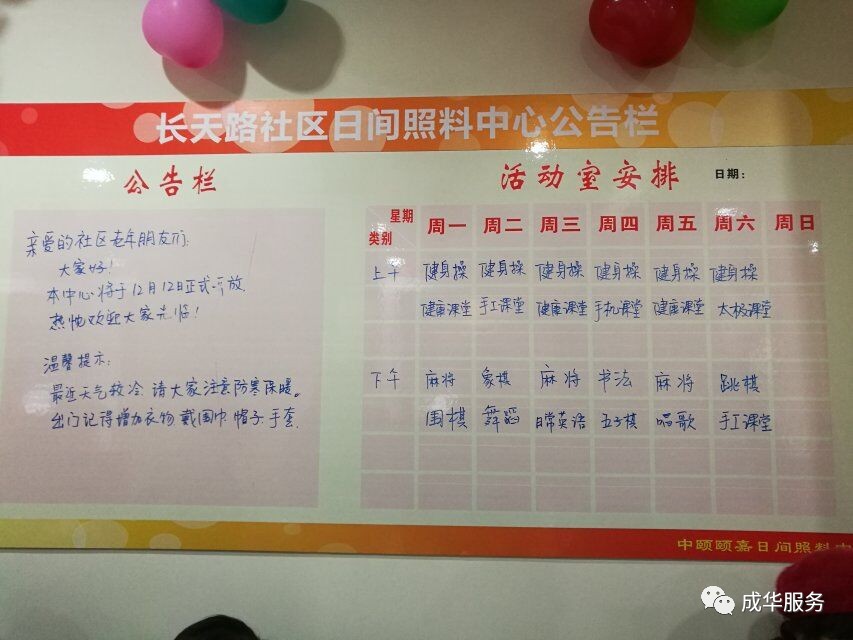 长天路社区日间照料中心公告栏
公告栏
亲爱的社区老年朋友们:
大家好!
本中心将于12月12日正式开放
热忱欢迎大家光临!
温馨提示:
最近天气较冷 请大家注意防寒保暖。
出门记得增加衣物 戴围巾 帽子 手套.
活动室安排 日期:
星期 类别 周一 周二 周三 周四 周五 周六 周日
上午 健身操 健身操 健身操 健身操 健身操 健身操
健康课堂 手工课堂 健康课堂 手机课堂 健康课堂 太极课堂
下午 麻将 象棋 麻将 书法 麻将 跳棋
围棋 舞蹈 日常英语 五子棋 唱歌 手工课堂
中颐颐嘉日间照料中
成华服务